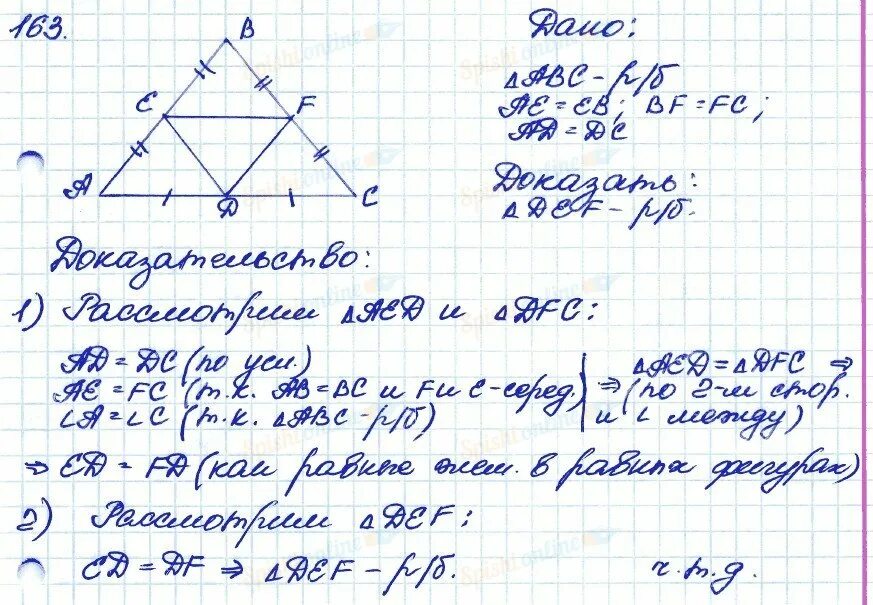 163.
B
E
F
A
D
C
Дано:
△ABC – р/б
AE = EB; BF = FC;
AD = DC
Доказать:
△DEF – р/б.
Доказательство:
1) Рассмотрим △AED и △DFC:
AD = DC (по усл.)
AE = FC (т.к. AB = BC и F и E – серед.)
∠A = ∠C (т.к. △ABC – р/б)
⇒ △AED = △DFC ⇒
(по 2-м стор.
и ∠ между)
⇒ ED = FD (как равные элем. в равных фигурах)
2) Рассмотрим △DEF:
ED = DF ⇒ △DEF – р/б.
ч.т.д.